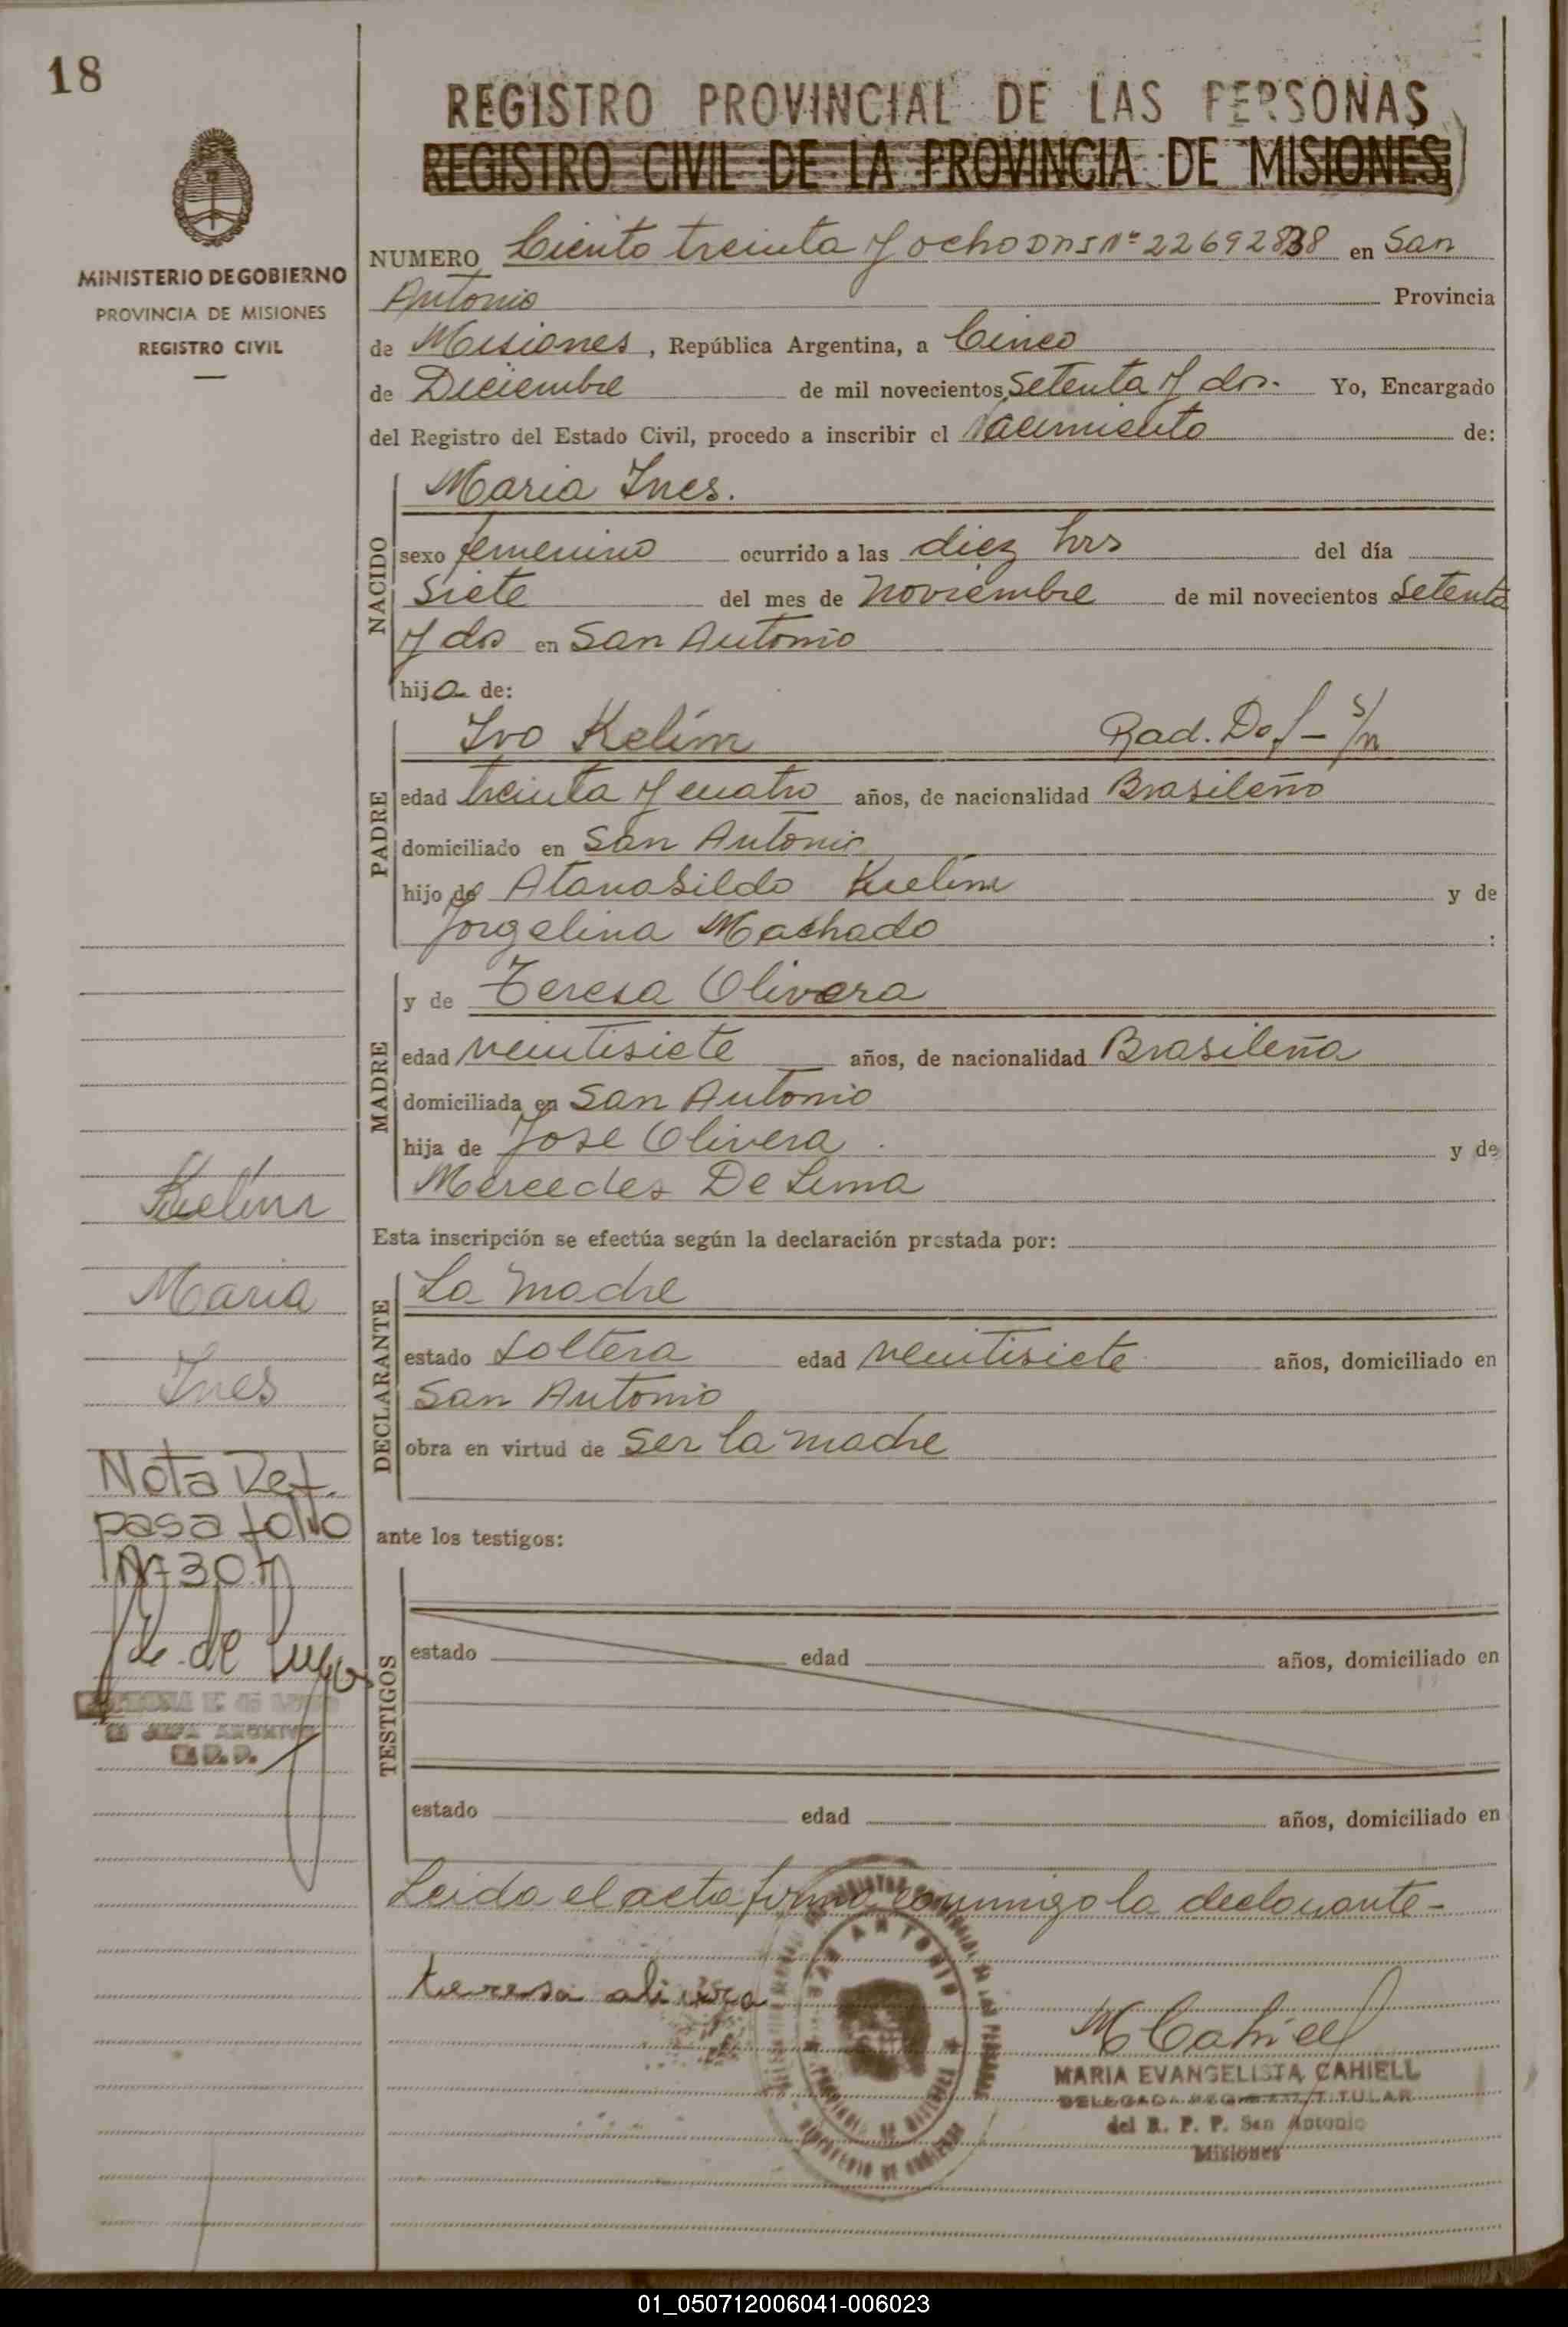 18
REGISTRO PROVINCIAL DE LAS PERSONAS
REGISTRO CIVIL DE LA PROVINCIA DE MISIONES
MINISTERIO DE GOBIERNO
PROVINCIA DE MISIONES
REGISTRO CIVIL
NUMERO Ciento treinta y ocho DNI Nº 22692838 en San
Antonio Provincia
de Misiones, República Argentina, a Cinco
de Diciembre de mil novecientos Setenta y dos. Yo, Encargado
del Registro del Estado Civil, procedo a inscribir el Nacimiento de:
NACIDO
Maria Ines.
sexo femenino ocurrido a las diez hrs del día
siete del mes de noviembre de mil novecientos setenta
y dos en San Antonio
hija de:
PADRE
Ivo Kelim Rad. Def - s/n
edad treinta y cuatro años, de nacionalidad Brasileño
domiciliado en San Antonio
hijo de Atanasildo y de
Jorgelina Machado :
MADRE
y de Teresa Olivera
edad veintisiete años, de nacionalidad Brasileña
domiciliada en San Antonio
hija de Jose Olivera y de
Mercedes De Lima
Esta inscripción se efectúa según la declaración prestada por:
DECLARANTE
La madre
estado soltera edad veintisiete años, domiciliado en
San Antonio
obra en virtud de ser la madre
ante los testigos:
TESTIGOS
estado edad años, domiciliado en
estado edad años, domiciliado en
Leida el acta firma conmigo la declarante -
teresa olivera
M Cahiell
MARIA EVANGELISTA CAHIELL
DELEGADA TITULAR
del R. P. P. San Antonio
Misiones
SAN ANTONIO
Maria
Ines
Nota Ref.
pasa folio
Nº 30
01_050712006041-006023